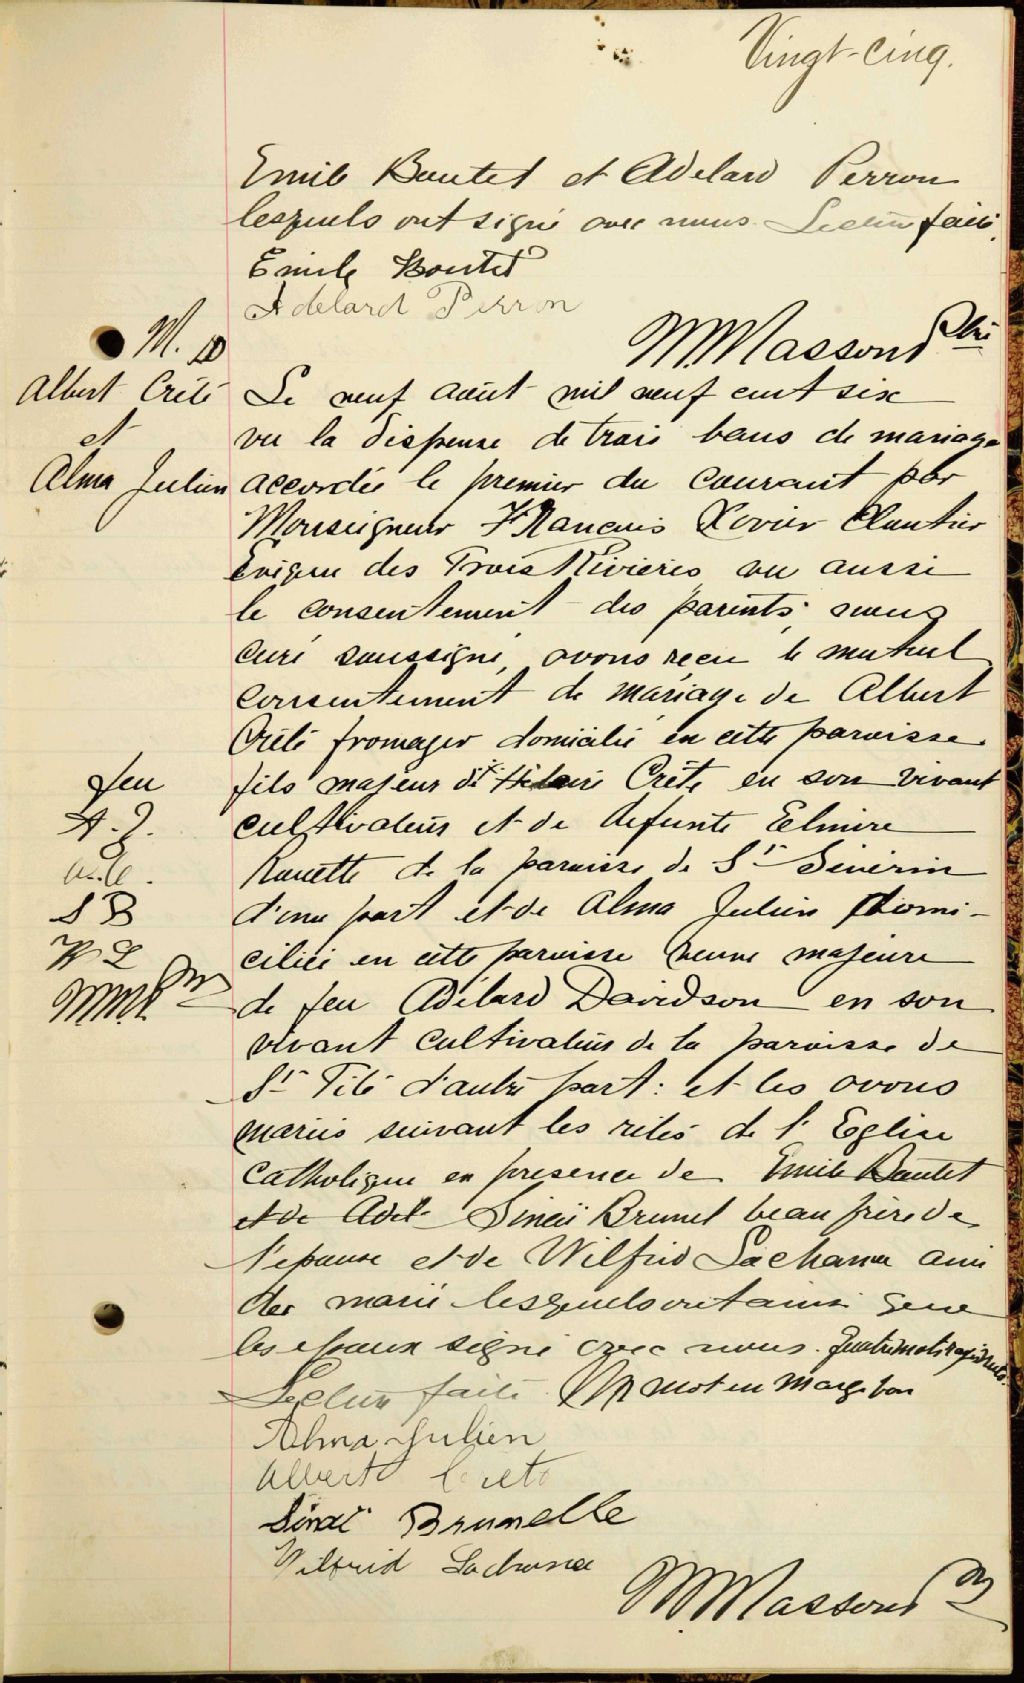 Vingt-cinq.
Emile Boutet et Adelard Perron
lesquels ont signé avec nous. Lecture faite.
Emile Boutet
Adelard Perron
M. Massons Ptre
M. 10
Albert Crête
et
Alma Julien
Le neuf août mil neuf cent six
vu la dispense de trois bans de mariage
accordée le premier du courant par
Monseigneur François Xavier Cloutier
Evêque des Trois Rivières, vu aussi
le consentement des parents; nous
curé soussigné, avons reçu le mutuel
consentement de mariage de Albert
Crête fromager domicilié en cette paroisse
feu
fils majeur de + Crête en son vivant
A. J.
cultivateur et de defunte Elmire
a. c.
de la paroisse de St Sévérin
S B
d'une part et de Alma Julien domi-
W L
ciliée en cette paroisse veuve majeure
de feu Adélard Davidson en son
vivant cultivateur de la paroisse de
St Tite d'autre part: et les avons
mariés suivant les rites de l'Eglise
catholique en presence de Emile Boutet
et de Adel. Sinaï Brunel beau frère de
l'epouse et de Wilfrid Lachance ami
du marié lesquels ont ainsi que
les epoux signé avec nous. Quatre mots rayés nuls.
Lecture faite. Un mot en marge bon
Alma Julien
Albert Crete
Sinaï Brunelle
Wilfrid Lachance
M. Massons